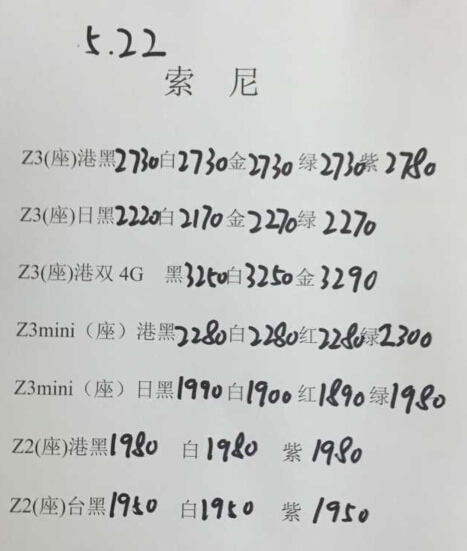 5.22
索 尼
Z3(座)港黑2730白2730金2730 绿2730紫2780
Z3(座)日黑2220白2170金2270绿2270
Z3(座)港双4G 黑3250白3250金3290
Z3mini（座）港黑2280白2280红2280绿2300
Z3mini（座）日黑1990白1900红1890绿1980
Z2(座)港黑1980 白1980 紫1980
Z2(座)台黑1950 白1950 紫1950